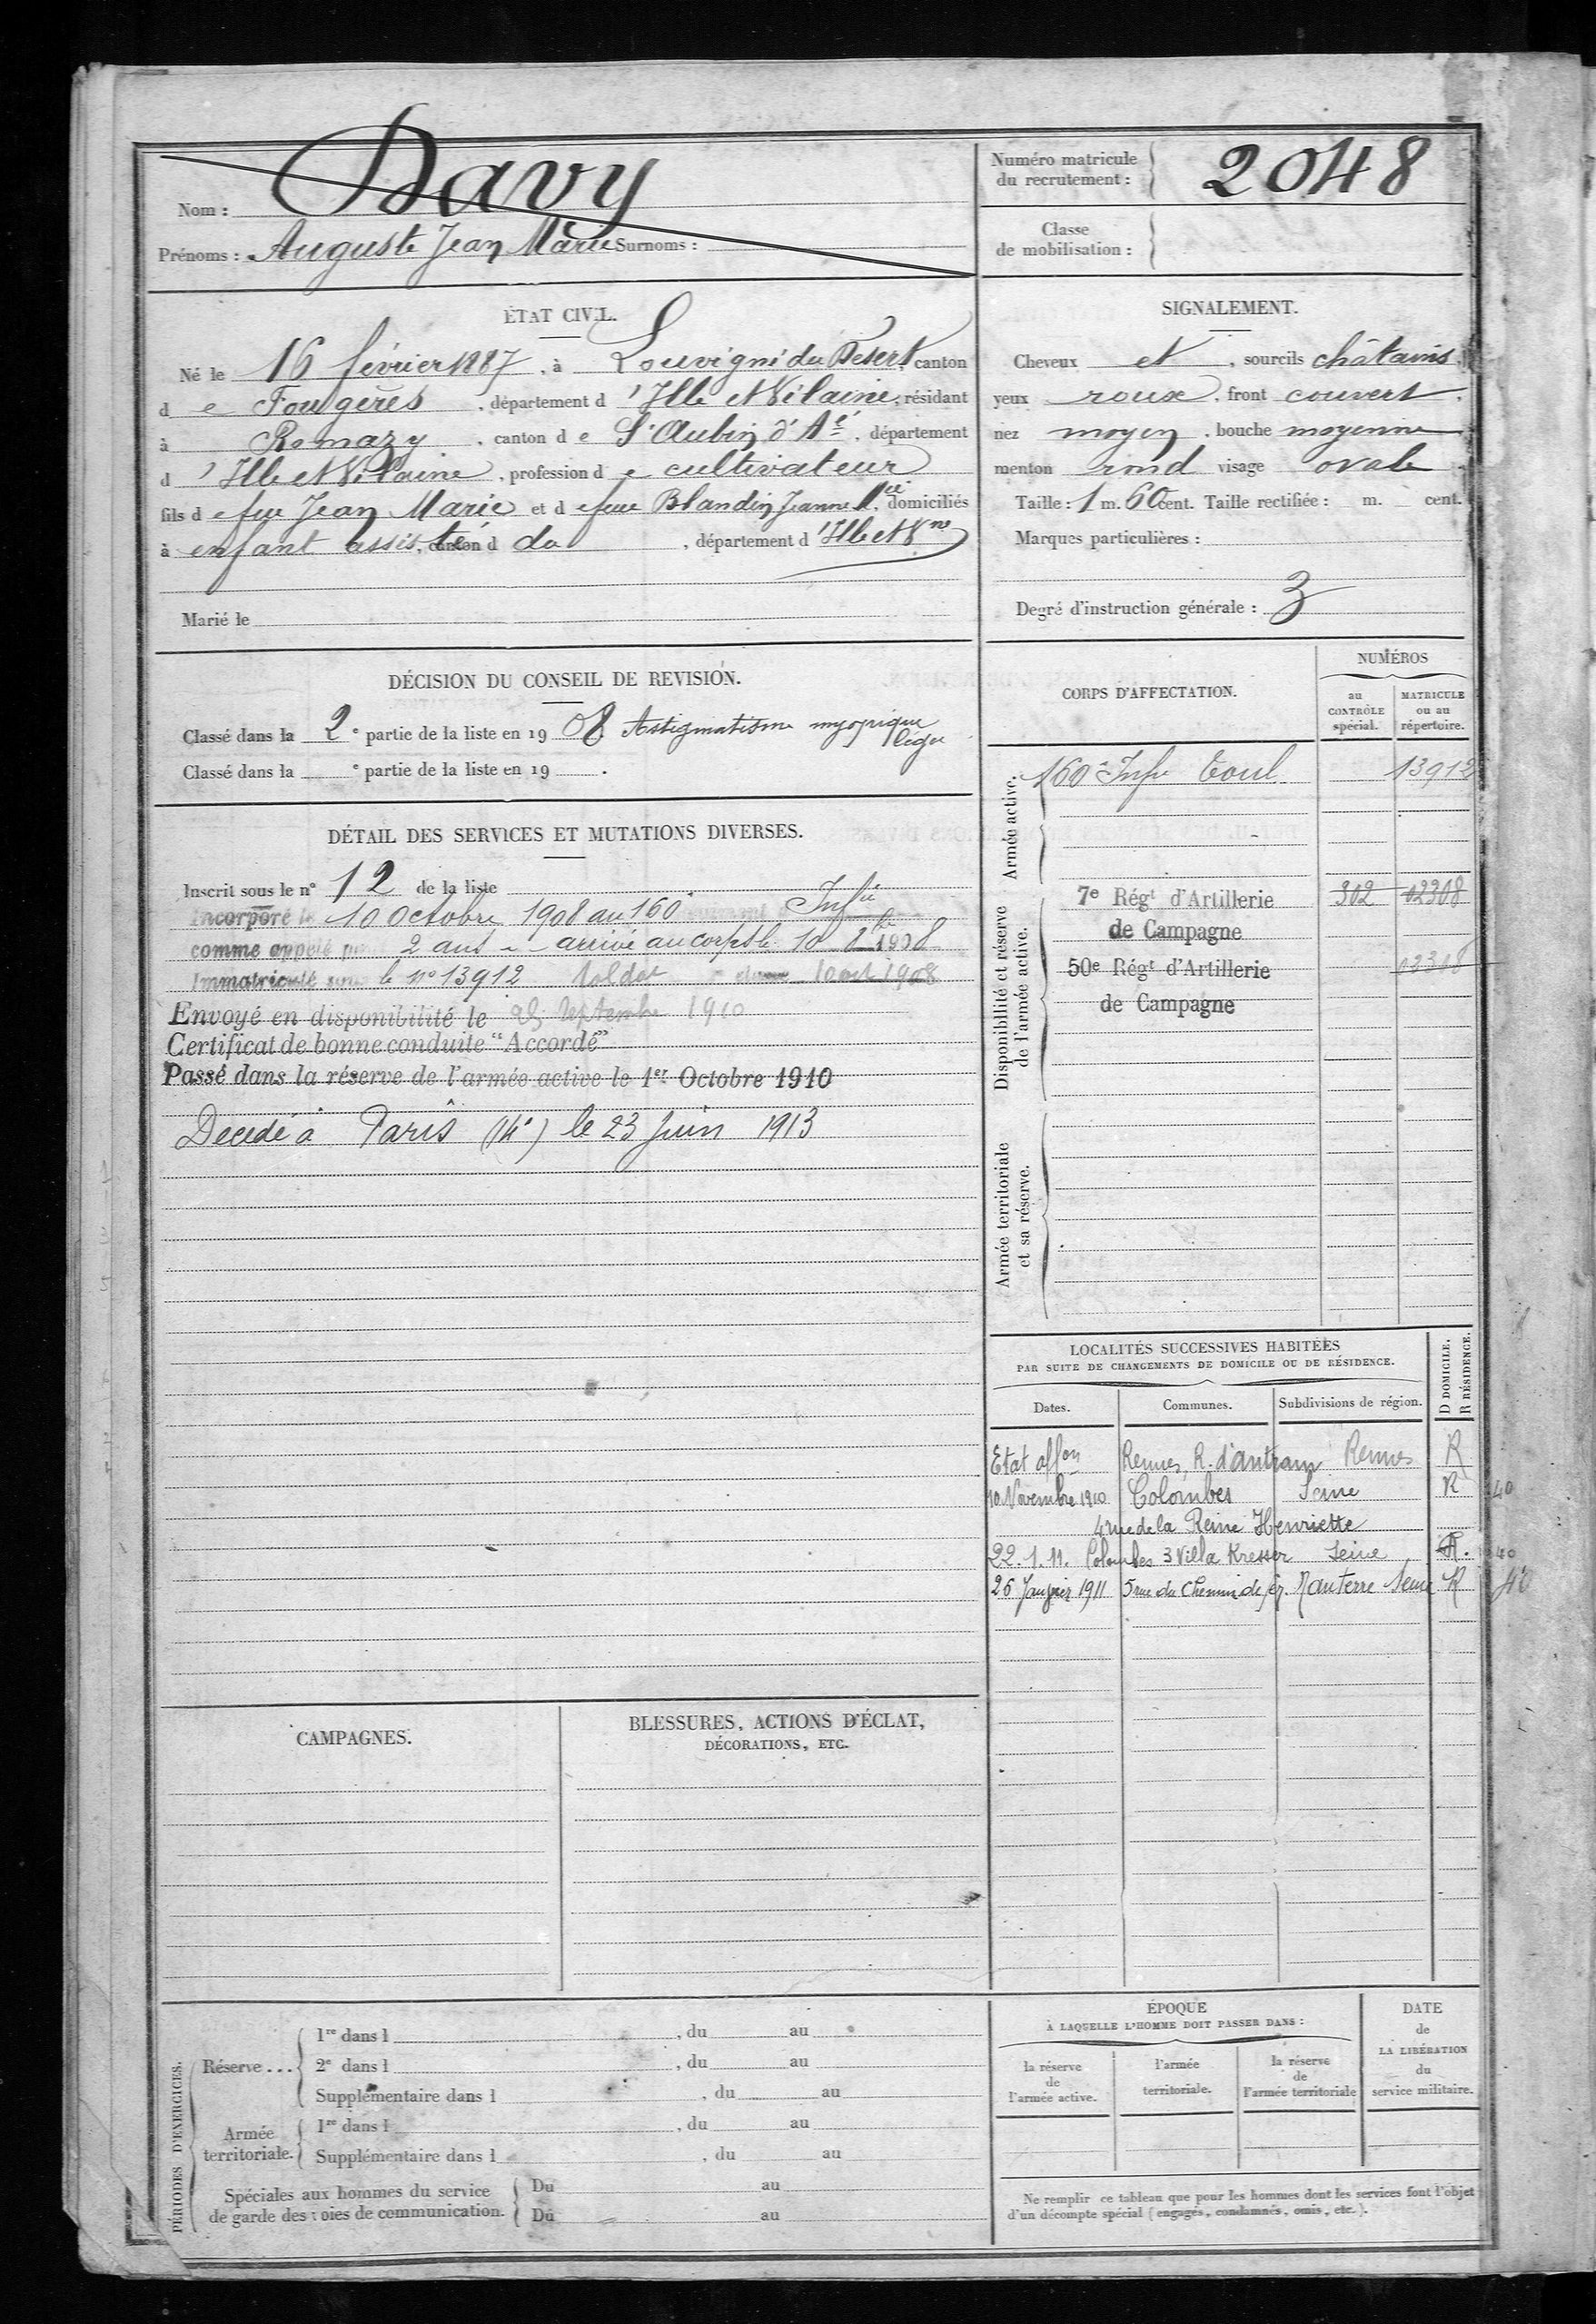 Nom : Davy
Prénoms : Auguste Jean Marie Surnoms :
Numéro matricule
du recrutement : 2048
Classe
de mobilisation :
ÉTAT CIVIL.
Né le 16 février 1887, à Louvigné du Désert, canton
de Fougères, département d'Ille et Vilaine, résidant
à Romazy, canton de St Aubin d'Aé, département
d'Ille et Vilaine, profession de cultivateur
fils de feu Jean Marie et de feue Blandin Jeanne Mie, domiciliés
à enfant assisté, canton d du, département d'Ille et Vne
Marié le
SIGNALEMENT.
Cheveux et, sourcils châtains,
yeux roux, front couvert,
nez moyen, bouche moyenne
menton rond visage ovale
Taille : 1 m. 60 cent. Taille rectifiée : m. cent.
Marques particulières :
Degré d'instruction générale : 3
DÉCISION DU CONSEIL DE REVISION.
Classé dans la 2e partie de la liste en 1908 Astigmatisme myopique
léger
Classé dans la e partie de la liste en 19 .
DÉTAIL DES SERVICES ET MUTATIONS DIVERSES.
Inscrit sous le n° 12 de la liste
Incorporé le 10 Octobre 1908 au 160 Infie
comme appelé pour 2 ans - arrivé au corps le 10 8bre 1908
Immatriculé sous le n° 13912 soldat 10 oct 1908
Envoyé en disponibilité le 25 Septembre 1910
Certificat de bonne conduite "Accordé"
Passé dans la réserve de l'armée active le 1er Octobre 1910
Décédé à Paris (14e) le 23 Juin 1913
CORPS D'AFFECTATION.
NUMÉROS
au
CONTRÔLE
spécial.
MATRICULE
ou au
répertoire.
Armée active.
160e Infie Toul 13912
Disponibilité et réserve
de l'armée active.
7e Régt d'Artillerie 302 02308
de Campagne
50e Régt d'Artillerie 02308
de Campagne
Armée territoriale
et sa réserve.
LOCALITÉS SUCCESSIVES HABITÉES
PAR SUITE DE CHANGEMENTS DE DOMICILE OU DE RÉSIDENCE.
D DOMICILE.
R RÉSIDENCE.
Dates. Communes. Subdivisions de région.
Etat affon Rennes, R. d'antrain Rennes R
10 Novembre 1910 Colombes Seine R 40
4 rue de la Reine Henriette
22.1.11. Colombes 3 Villa Kresser Seine R. 40
26 Janvier 1911 5 rue du Chemin de fer. Nanterre Seine R 40
CAMPAGNES.
BLESSURES, ACTIONS D'ÉCLAT,
DÉCORATIONS, ETC.
PÉRIODES D'EXERCICES.
Réserve...
1re dans l , du au
2e dans l , du au
Supplémentaire dans l , du au
Armée
territoriale.
1re dans l , du au
Supplémentaire dans l , du au
Spéciales aux hommes du service
de garde des voies de communication.
Du au
Du au
ÉPOQUE
À LAQUELLE L'HOMME DOIT PASSER DANS :
la réserve
de
l'armée active.
l'armée
territoriale.
la réserve
de
l'armée territoriale
DATE
de
LA LIBÉRATION
du
service militaire.
Ne remplir ce tableau que pour les hommes dont les services font l'objet
d'un décompte spécial (engagés, condamnés, omis, etc.).